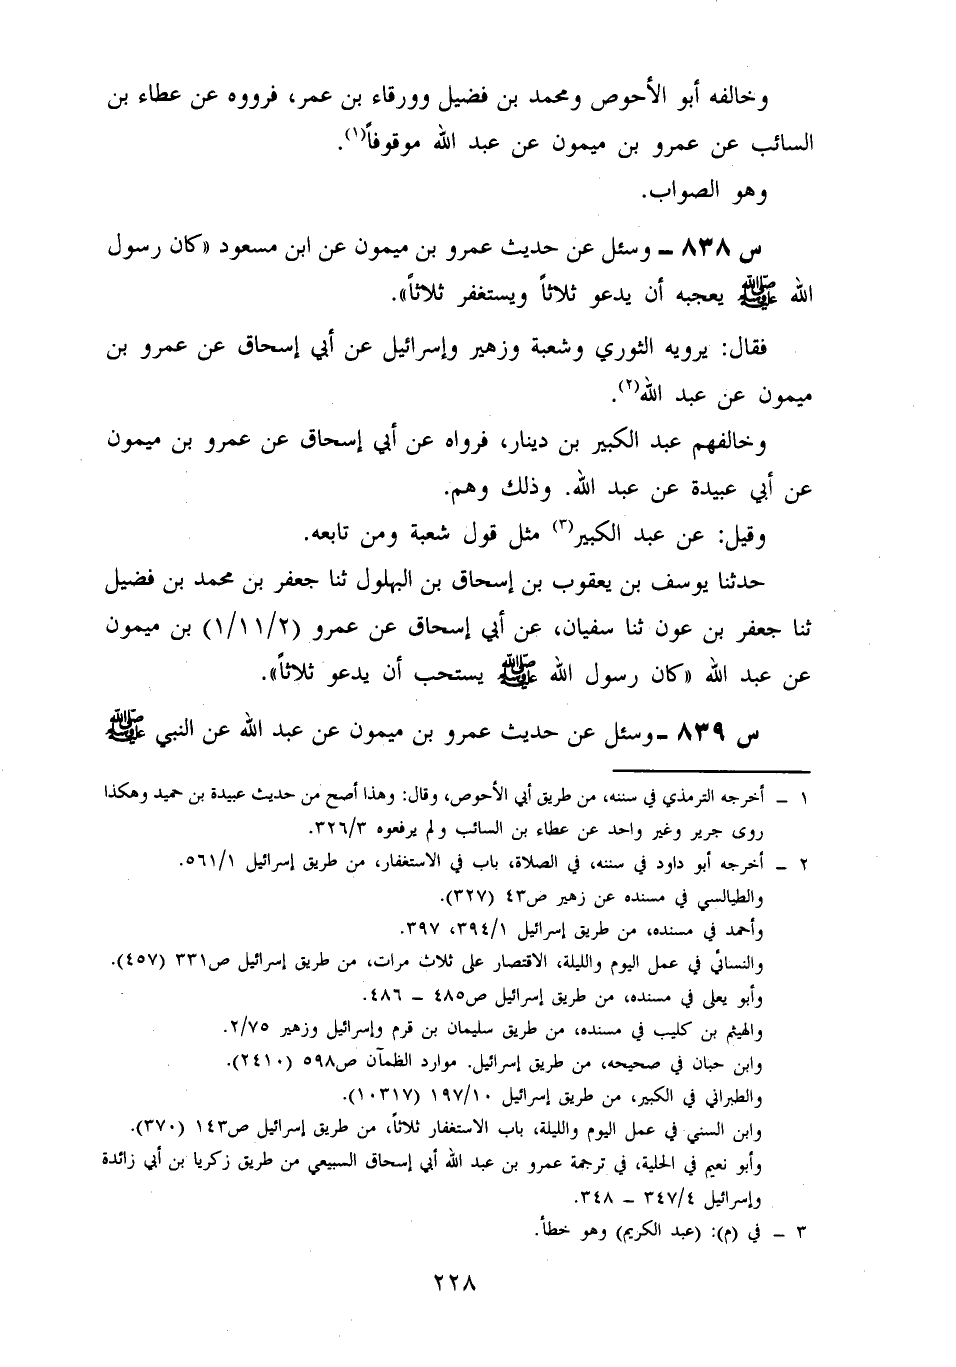 وخالفه أبو الأحوص ومحمد بن فضيل وورقاء بن عمر، فرووه عن عطاء بن
السائب عن عمرو بن ميمون عن عبد الله موقوفاً(١).
وهو الصواب.
س ٨٣٨ ـ وسئل عن حديث عمرو بن ميمون عن ابن مسعود «كان رسول
الله ﷺ يعجبه أن يدعو ثلاثاً ويستغفر ثلاثاً».
فقال: يرويه الثوري وشعبة وزهير وإسرائيل عن أبي إسحاق عن عمرو بن
ميمون عن عبد الله(٢).
وخالفهم عبد الكبير بن دينار، فرواه عن أبي إسحاق عن عمرو بن ميمون
عن أبي عبيدة عن عبد الله. وذلك وهم.
وقيل: عن عبد الكبير(٣) مثل قول شعبة ومن تابعه.
حدثنا يوسف بن يعقوب بن إسحاق بن البهلول ثنا جعفر بن محمد بن فضيل
ثنا جعفر بن عون ثنا سفيان، عن أبي إسحاق عن عمرو (١/١١/٢) بن ميمون
عن عبد الله «كان رسول الله ﷺ يستحب أن يدعو ثلاثاً».
س ٨٣٩ ـ وسئل عن حديث عمرو بن ميمون عن عبد الله عن النبي ﷺ
١ ـ أخرجه الترمذي في سننه، من طريق أبي الأحوص، وقال: وهذا أصح من حديث عبيدة بن حميد وهكذا
روى جرير وغير واحد عن عطاء بن السائب ولم يرفعوه ٣٢٦/٣.
٢ ـ أخرجه أبو داود في سننه، في الصلاة، باب في الاستغفار، من طريق إسرائيل ٥٦١/١.
والطيالسي في مسنده عن زهير ص٤٣ (٣٢٧).
وأحمد في مسنده، من طريق إسرائيل ٣٩٤/١، ٣٩٧.
والنسائي في عمل اليوم والليلة، الاقتصار على ثلاث مرات، من طريق إسرائيل ص٣٣١ (٤٥٧).
وأبو يعلى في مسنده، من طريق إسرائيل ص٤٨٥ ـ ٤٨٦.
والهيثم بن كليب في مسنده، من طريق سليمان بن قرم وإسرائيل وزهير ٢/٧٥.
وابن حبان في صحيحه، من طريق إسرائيل. موارد الظمآن ص٥٩٨ (٢٤١٠).
والطبراني في الكبير، من طريق إسرائيل ١٩٧/١٠ (١٠٣١٧).
وابن السني في عمل اليوم والليلة، باب الاستغفار ثلاثاً، من طريق إسرائيل ص١٤٣ (٣٧٠).
وأبو نعيم في الحلية، في ترجمة عمرو بن عبد الله أبي إسحاق السبيعي من طريق زكريا بن أبي زائدة
وإسرائيل ٣٤٧/٤ ـ ٣٤٨.
٣ ـ في (م): (عبد الكريم) وهو خطأ.
٢٢٨